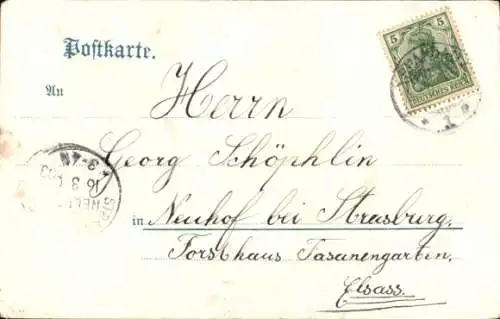 Postkarte.
5 5
DEUTSCHES REICH
An
Herrn
Georg Schöphlin
3-4N
16 3 03
in Neuhof bei Strasburg.
Forsthaus Fasanengarten.
Elsass.